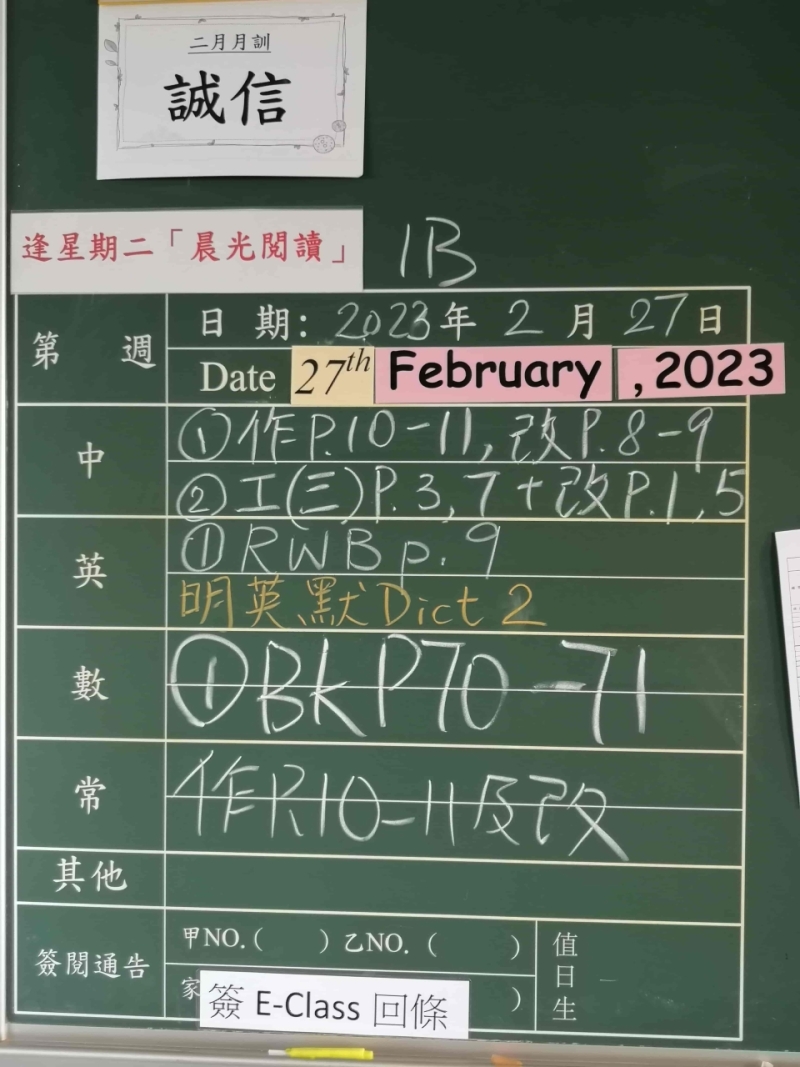 二月月訓
誠信
逢星期二「晨光閱讀」
1B
第 週
日 期: 2023年 2 月 27日
Date 27th February , 2023
中
①作P.10-11,改P.8-9
②工(三)P.3,7+改P.1,5
英
①RWB p.9
明英默Dict 2
數
①BK P70-71
常
作P.10-11及改
其他
簽閱通告
甲NO.( ) 乙NO. ( )
家 )
簽 E-Class 回條
值日生